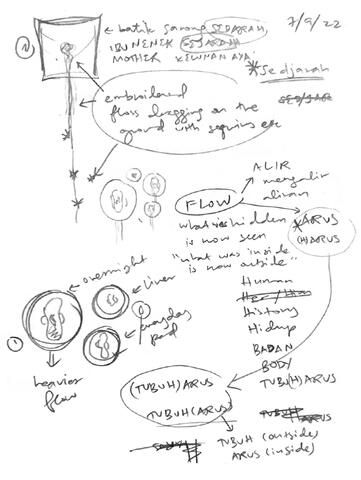 7/9/22
batik sarong SEDARAH,
IBU NENEK SEJARAH
MOTHER
*Sedjarah
embroidered
floss dragging on the
ground with sequins etc
FLOW
ALIR
mengalir
aliran
what is hidden
is now seen
"what was inside
is now outside"
*ARUS
(H)ARUS
overnight
liner
everyday
pad
heavier
flow
Human
History
Hidup
BADAN
BODY
TUBU(H)ARUS
(TUBUH)ARUS
TUBUH(ARUS)
TUBUH (outside)
ARUS (inside)